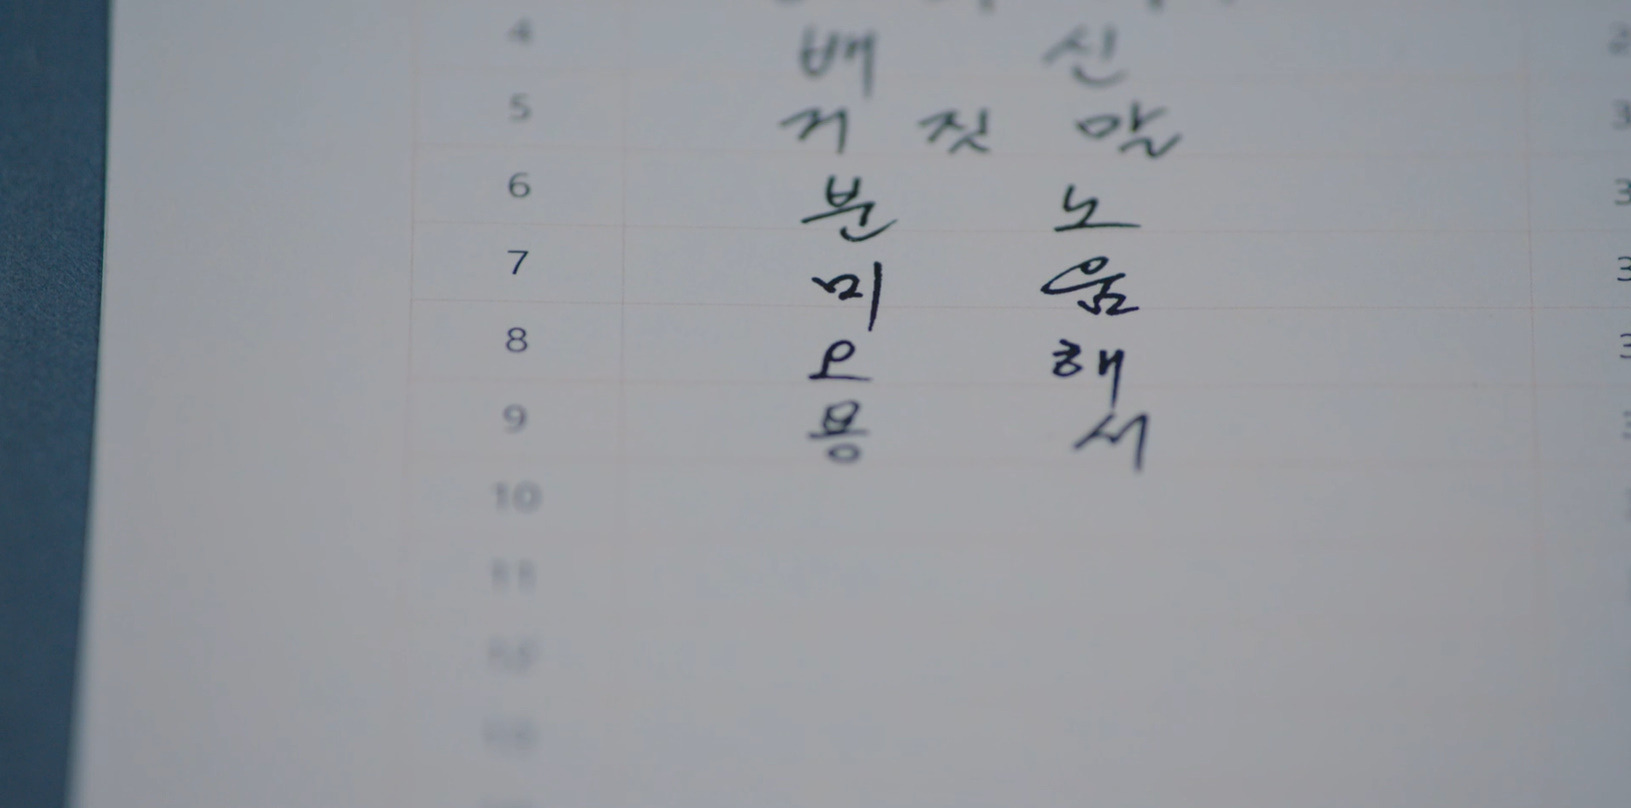 4 배 신
5 거 짓 말
6 분 노
7 미 움
8 오 해
9 용 서
10
11
12
13